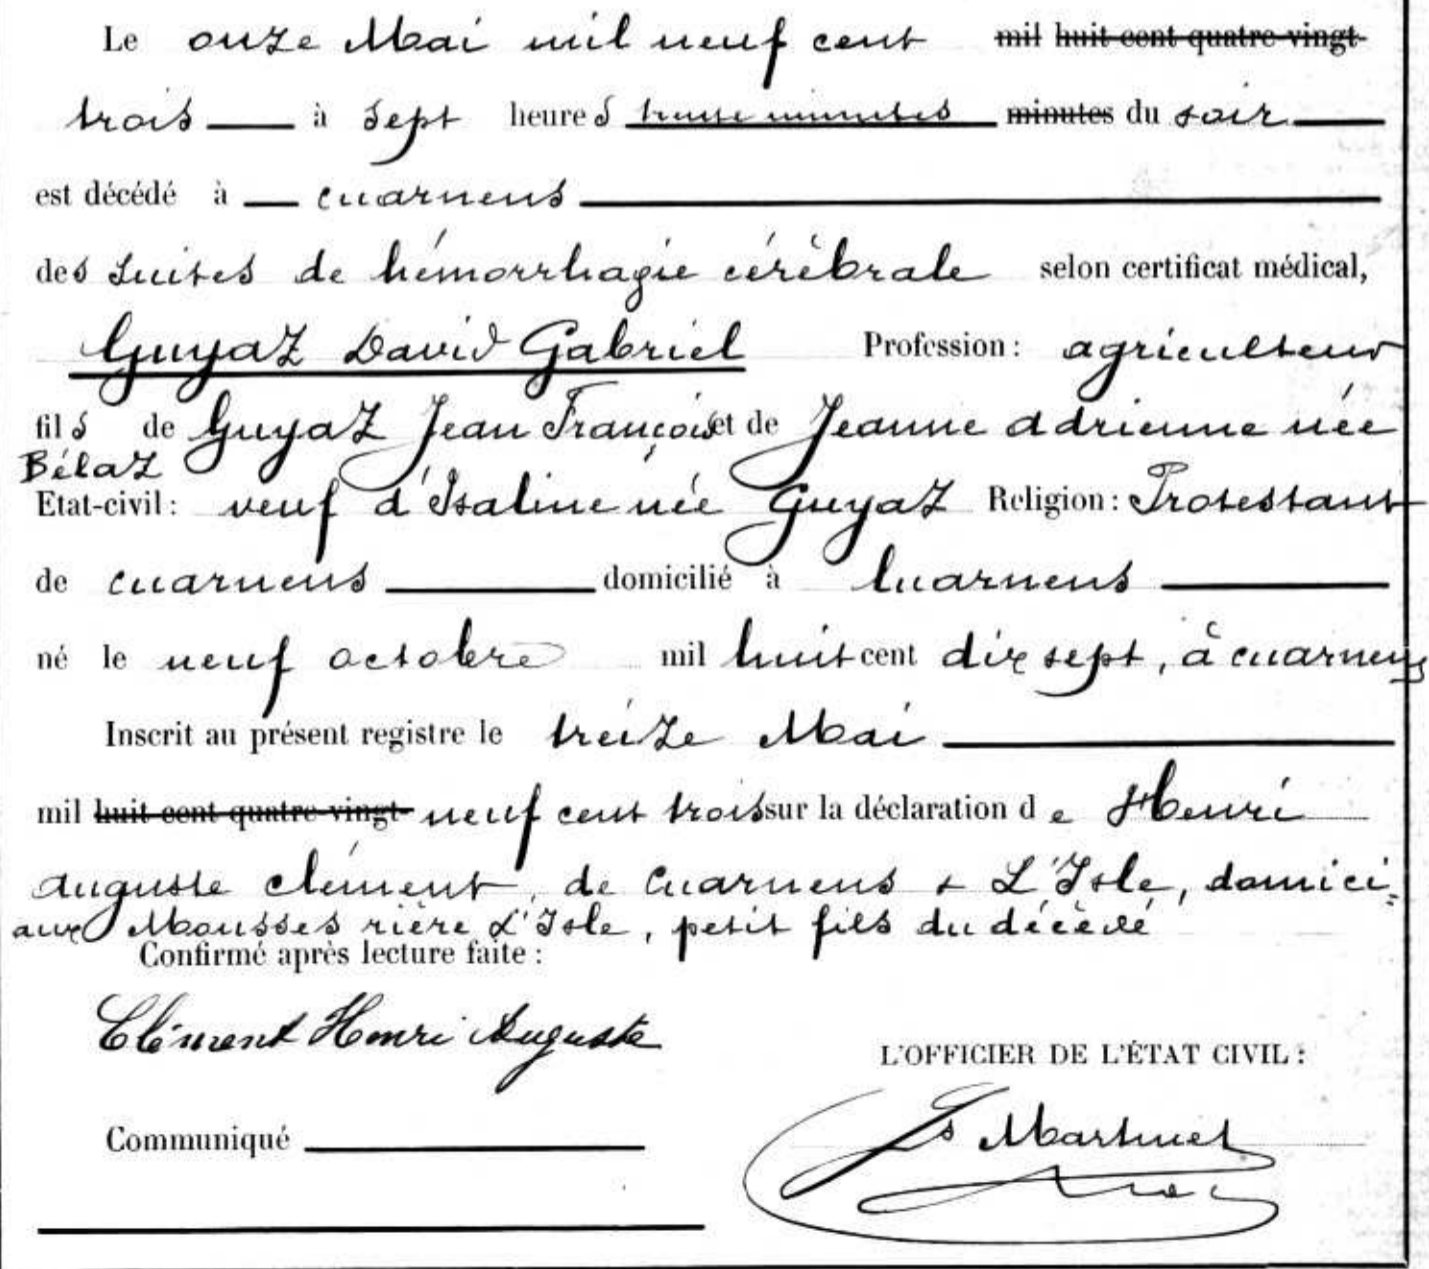 Le onze Mai mil neuf cent mil huit cent quatre-vingt-
trois à sept heures trente minutes minutes du soir
est décédé à cuarnens
des suites de hémorrhagie cérébrale selon certificat médical,
Guyaz David Gabriel Profession : agriculteur
fils de Guyaz Jean François et de Jeanne adrienne née
Bélaz
Etat-civil : veuf d'Isaline née Guyaz Religion : Protestant
de cuarnens domicilié à Cuarnens
né le neuf octobre mil huit cent dix sept, à cuarnens
Inscrit au présent registre le treize Mai
mil huit cent quatre-vingt- neuf cent trois sur la déclaration de Henri
auguste clément, de Cuarnens & L'Isle, domici=
aux Mousses rière L'Isle, petit fils du décédé
Confirmé après lecture faite :
Clément Henri Auguste
L'OFFICIER DE L'ÉTAT CIVIL :
Communiqué
Ls Martinet